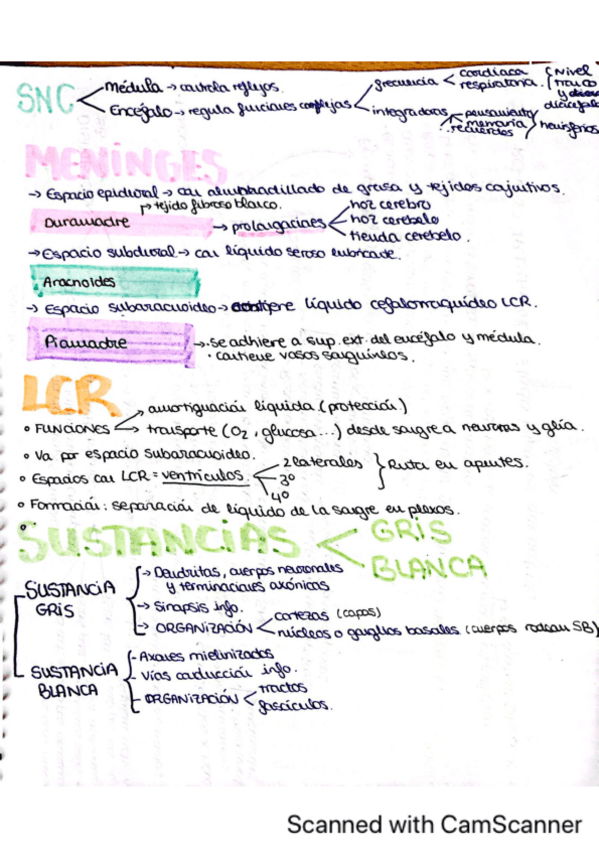 SNC
Médula → controla reflejos.
Encéfalo → regula funciones complejas
frecuencia
cardíaca
respiratoria.
Nivel
tronco
y
diencéfalo
integradoras
pensamiento
memoria
recuerdos
hemisferios
MENINGES
→ Espacio epidural → con almohadillado de grasa y tejidos conjuntivos.
→ tejido fibroso blanco.
Duramadre
→ prolongaciones
hoz cerebro
hoz cerebelo
tienda cerebelo.
→ Espacio subdural → con líquido seroso lubricante.
Aracnoides
→ Espacio subaracnoideo → contiene líquido cefalorraquídeo LCR.
Piamadre
→ . se adhiere a sup. ext. del encéfalo y médula.
· contiene vasos sanguíneos.
LCR
FUNCIONES
amortiguación líquida (protección)
transporte (O2, glucosa...) desde sangre a neuronas y glía.
Va por espacio subaracnoideo.
Espacios con LCR = ventrículos.
2 laterales
3º
4º
Ruta en apuntes.
Formación: separación de líquido de la sangre en plexos.
SUSTANCIAS
GRIS
BLANCA
SUSTANCIA GRIS
→ Dendritas, cuerpos neuronales
y terminaciones axónicas
→ Sinapsis info.
→ ORGANIZACIÓN
cortezas (capas)
núcleos o ganglios basales (cuerpos rodean SB)
SUSTANCIA BLANCA
- Axones mielinizados
- Vías conducción info.
- ORGANIZACIÓN
tractos
fascículos.
Scanned with CamScanner